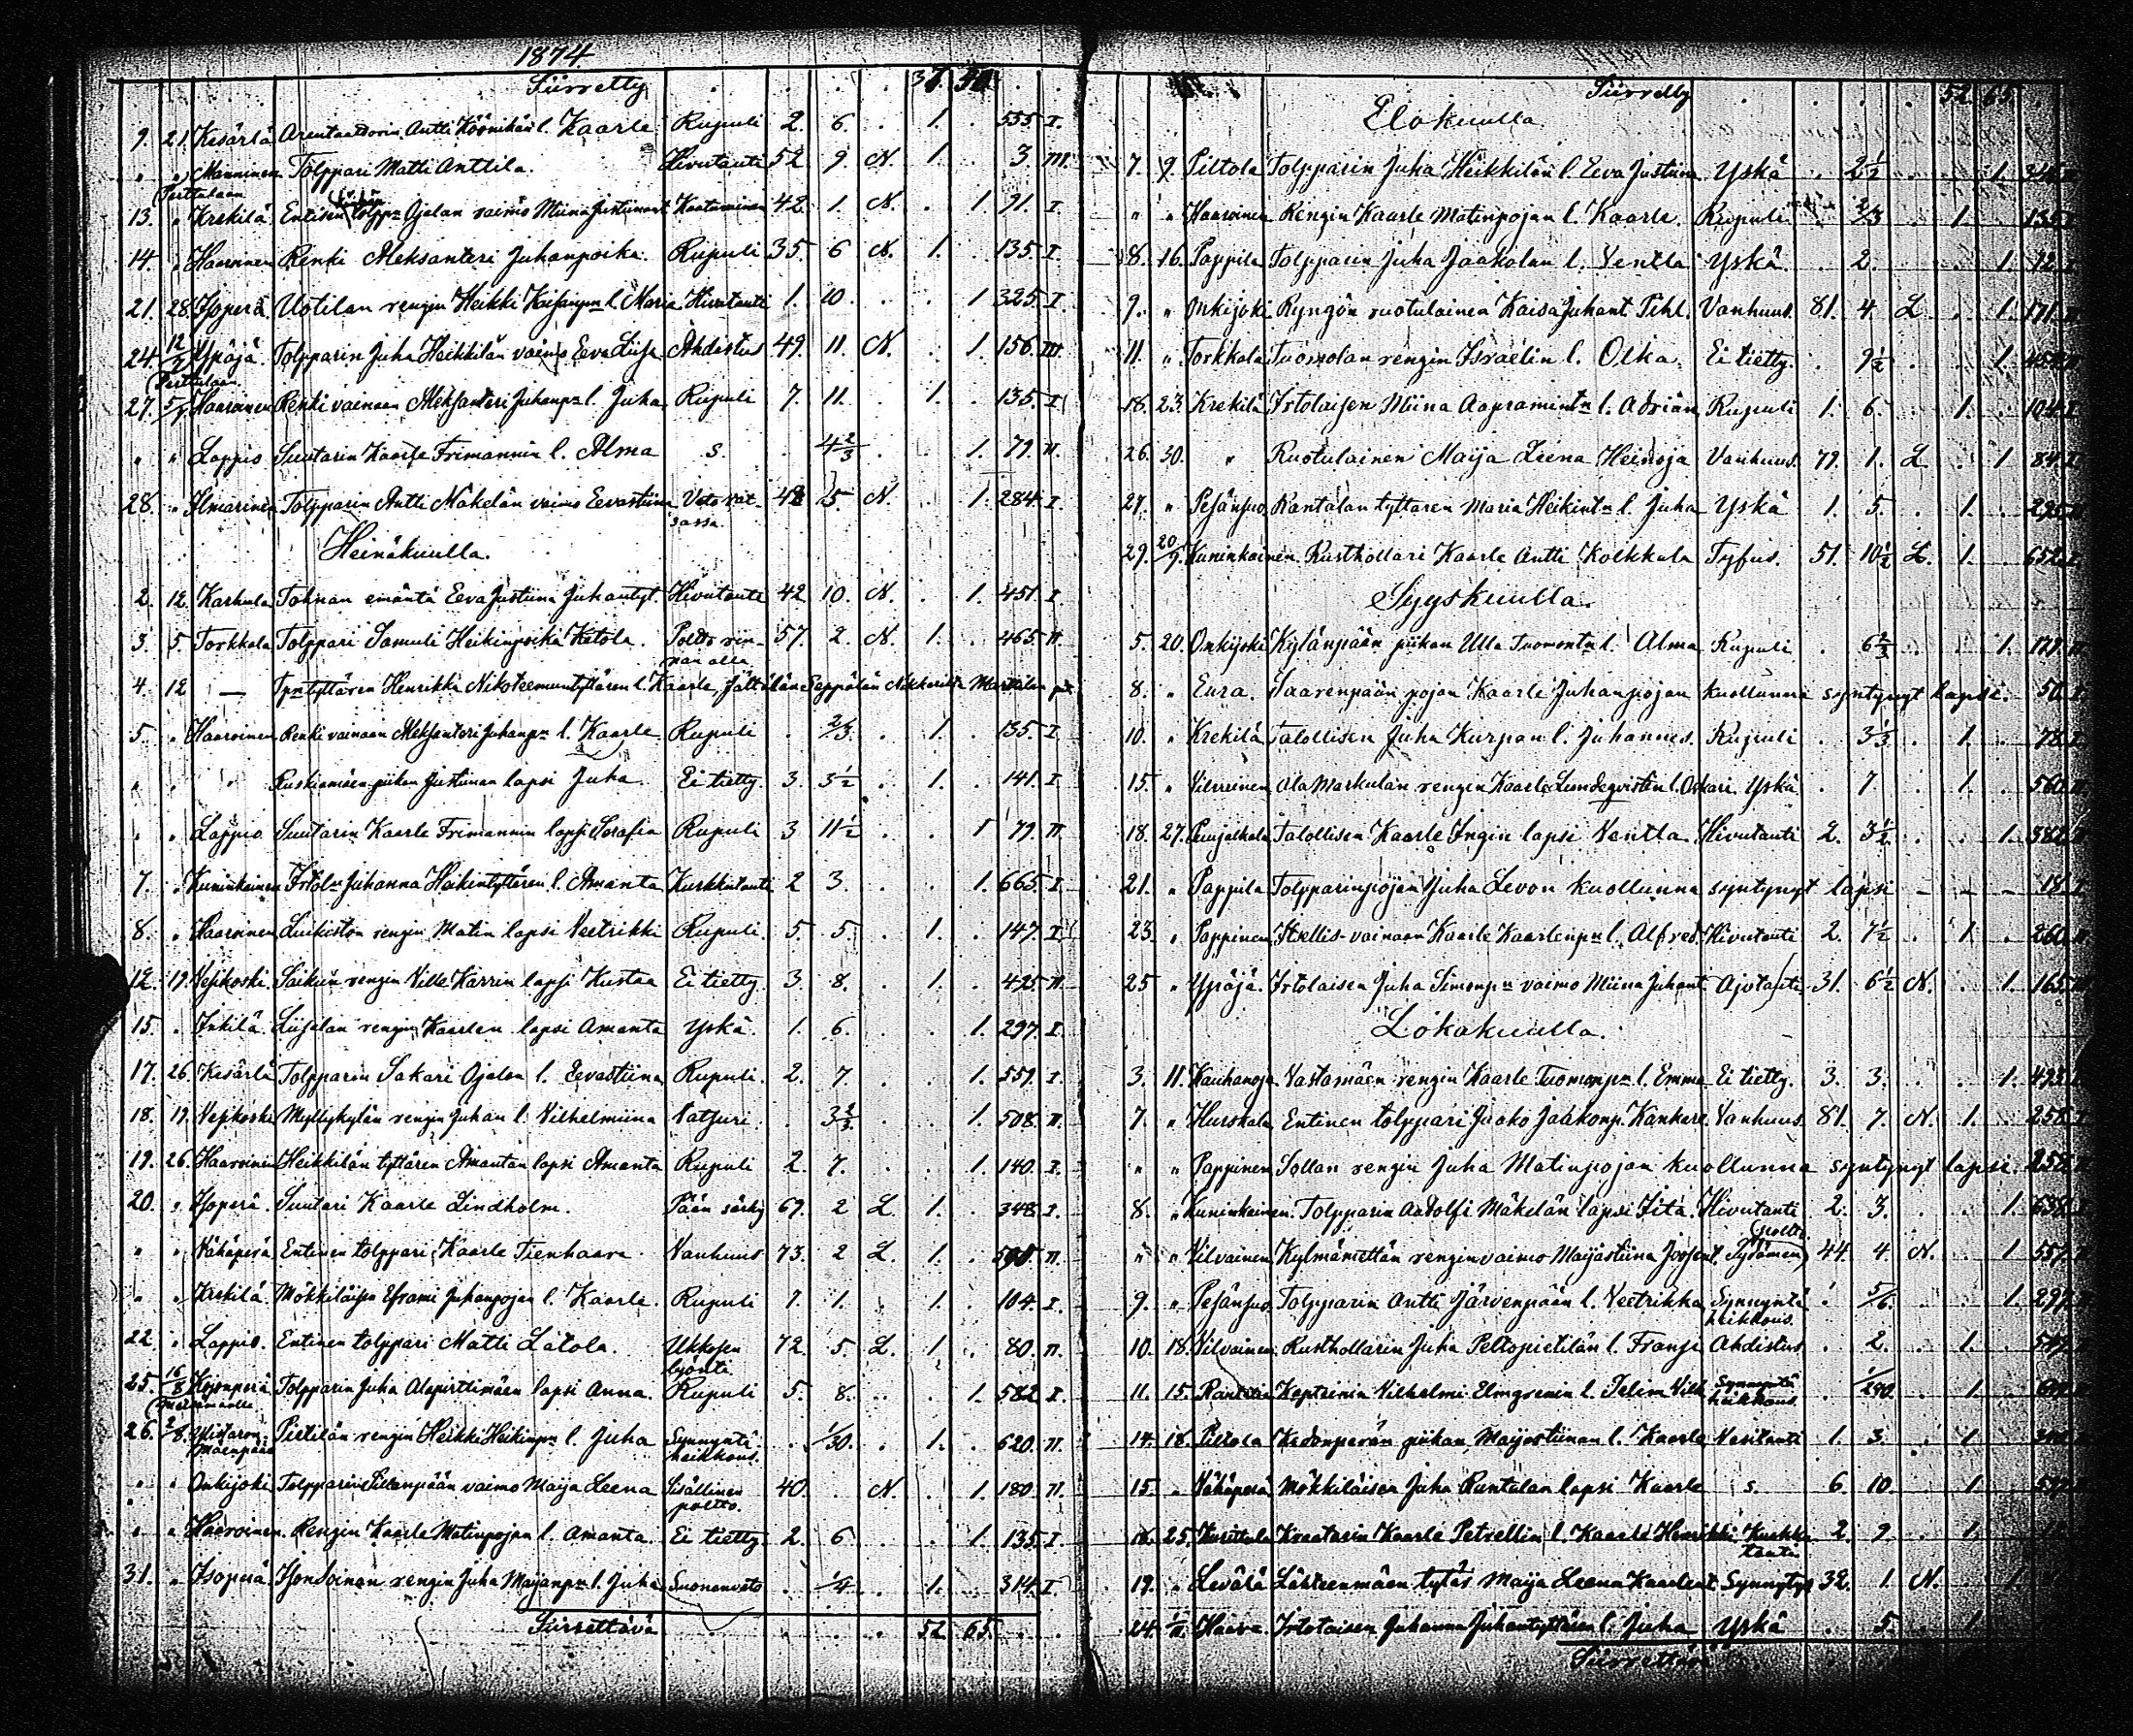 1874
Siirretty . . . . 37. 50. . .
9. 21. Kesärlä Arentaattorin Antti Köönikän l. Kaarle Rupuli 2. 6. . 1. . 555. I.
" " Manninen Tolppari Matti Anttila. Hivutauti 52 9. N. 1. . 3. III.
(Perttulaan
13. " Krekilä Entisen tolpp= Ojalan vaimo Miina Justiinant Kaatuminen 42. 1. N. . 1 91. I
14. " Haaroinen Renki Aleksanteri Juhanpoika. Rupuli 35. 6 N. 1. . 135. I
21. 28. Isoperä. Uotilan rengin Heikki Kaisanp= l. Maria Hivutauti 1. 10. . . 1 325. I
24. 12/7 Ypäjä Tolpparin Juha Heikkilän vaimo Eeva Liisa Ahdistus 49. 11. N. . 1 156. III
(Perttulaan
27. 5/7 Haaroinen Renki vainaan Aleksanteri Juhanp= l. Juha Rupuli 7. 11. . 1. . 135. I
" " Loppio Suutarin Kaarle Frimannin l. Alma s. . 4 2/3 . . 1. 79. II.
28. " Ilmarinen Tolpparin Antti Mäkelän vaimo Eevastiina Veto vat- 48 5 N. . 1. 284. I.
sassa
Heinäkuulla.
2. 12. Karhula Tohnan emäntä Eeva Justiina Juhantyt. Hivutauti 42 10. N. . 1. 451. I.
3. 5. Torkkala Tolppari Samuli Heikinpoika Ketola. Polto rin- 57. 2. N. 1. . 465. II.
nan alla
4. 12 — Tp= tyttären Henrikka Nikoteemuntyttären l. Kaarle, Jättilän Seppälän
5. " Haaroinen Renki vainaan Aleksanteri Juhanp= l. Kaarle Rupuli . 2/3 . 1. . 135. I
" " " Ruskiamäen piikan Justiinan lapsi Juha. Ei tietty. 3. 3 1/2 . 1. . 141. I
" " Loppio Suutarin Kaarle Frimannin lapsi Serafia Rupuli 3 11 1/2 . . 1 79. II.
7. " Kuninkainen Irtol= Juhanna Heikintyttären l. Amanta Kurkkutauti 2 3. . . 1. 665. I
8. " Haaroinen Liukiston rengin Matin lapsi Veetrikki Rupuli. 5. 5. . 1. . 147. I
12. 19. Vepkoski. Saikun rengin Ville Karrin lapsi Kustaa Ei tietty. 3. 8. . 1. . 425. II.
15. " Inkilä Liisalan rengin Kaarlen lapsi Amanta Yskä. 1. 6. . . 1. 297. I.
17. 26. Kesärlä Tolpparin Sakari Ojalan l. Eevastiina Rupuli. 2. 7. . . 1. 557. I.
18. 19. Vepkoski Myllykylän rengin Juhan l. Vilhelmiina Vatsuri. . 3 2/3 . . 1. 508. II.
19. 26. Haaroinen Heikkilän tyttären Amantan lapsi Amanta Rupuli 2. 7. . . 1. 140. I.
20. " Isoperä. Suutari Kaarle Lindholm. Pään särky 69. 2 L. 1. . 348. I.
" " Vähäperä Entinen tolppari Kaarle Tienhaara. Vanhuus 73. 2 L. 1. . II.
" " Krekilä. Mökkiläisen Eframi Juhanpojan l. Kaarle. Rupuli 7. 1. . 1. . 104. I.
22. " Loppio. Entinen tolppari Matti Latola. Ukkosen 72. 5. L. 1 . 80. II.
lyönti
25. 16/8 Kojonperä Tolpparin Juha Alapirttimäen lapsi Anna. Rupuli 5. 8. . . 1. 582 I.
26. 2/8. Pietilän rengin Heikki Heikinp= l. Juha Synnyntä- . 1/30. . 1. . 620. II.
heikkous.
" " Onkijoki Tolpparin Sillanpään vaimo Maija Leena Sisällinen 40. . N. . 1. 180. II.
poltto.
" " Haaroinen. Rengin Kaarle Matinpojan l. Amanta. Ei tietty. 2. 6 . . 1. 135. I.
31. " Isoperä Isonsoinan rengin Juha Maijanp= l. Juha Suonenveto . 1/4 . 1. . 314. I
Siirrettävä . . . . 52 65. . .
Siirretty . . . . 52 65
Elokuulla
7. 9. Piltola Tolpparin Juha Heikkilän l. Eeva Justiina Yskä . 2 1/2 . . 1.
" " Haaroinen Rengin Kaarle Matinpojan l. Kaarle. Rupuli . 2/3 . 1. . 135.
8. 16. Pappila Tolpparin Juha Jaakolan l. Ventla Yskä. . 2. . . 1. 12.
9. " Onkijoki Ryngön ruotulainen Kaisa Juhant Pihl. Vanhuus. 81. 4. L . 1. 171.
11. " Torkkala Tuomolan rengin Israelin l. Olka. Ei tietty. . 9 1/2 . . 1.
18. 23. Krekilä Irtolaisen Miina Aapramint= l. Adrian Rupuli 1. 6. . 1. . 104.
26. 30. " Ruotulainen Maija Leena Heinoja Vanhuus. 79. 1. L . 1 84. I
27. " Pesänsuo Rantalan tyttären Maria Heikint= l. Juha Yskä 1. 5. . 1. . 295.
29. 20/9. Kuninkainen. Rusthollari Kaarle Antti Kolkkala Tyfus. 51. 10 1/2 L. 1. . 652.
Syyskuulla.
5. 20. Onkijoki Kylänpään piikan Ulla Tuomont= l. Alma Rupuli . 6 2/3 . . 1. 179.
8. " Eura. Saarenpään pojan Kaarle Juhanpojan kuollunna syntynyt lapsi. 50. I
10. " Krekilä Talollisen Juha Kurpan l. Juhannes. Rupuli . 3 1/3 . 1. . 78. I
15. " Ala Markulan rengin Kaarle Lundeqvistin l. Oskari Yskä . 7 . 1. . 560.
18. 27. Talollisen Kaarle Ingin lapsi Ventla. Hivutauti 2. 3 1/2 . . 1. 382.
21. " Pappila Tolpparinpojan Juha Levon kuollunna syntynyt lapsi — — — 18. I
23. " Pappinen Itsellis-vainaan Kaarle Kaarlenp= l. Alfred. Hivutauti 2. 7 1/2 . 1. . 260.
25 " Ypäjä. Irtolaisen Juha Simonp= vaimo Miina Juhant Ajotauti 31. 6 1/2 N. . 1. 165.
Lokakuulla.
3. 11. Kauhanoja Vastamäen rengin Kaarle Tuomonp= l. Emma Ei tietty. 3. 3. . . 1. 493.
7. " Hurskala Entinen tolppari Jaako Jaakonp. Kankare Vanhuus. 81. 7. N. 1. . 258.
" " Pappinen Sollan rengin Juha Matinpojan kuollunna syntynyt lapsi. 258.
8. " Kuninkainen. Tolpparin Aadolfi Mäkelän lapsi Iita. Hivutauti 2. 3. . . 1. 638.
" " Vilvainen Kylmämettän rengin vaimo Maijastiina Joosent. Sydämen 44. 4 N. . 1 557.
(poltto
9. " Pesänsuo Tolpparin Antti Järvenpään l. Veetrikka Synnyntä . 5/6. . . 1. 297.
heikkous.
10. 18. Vilvainen. Rusthollarin Juha Peltopietilän l. Fransi Ahdistus . 2. . 1.
11. 15. Kapteinin Vilhelmi Elmgrenin l. Selim Vilh. Synnyntä . 1/290. . 1.
heikkous.
14. 18. Piltola Kedonperän piikan Maijastiinan l. Kaarle Vesitauti 1. 3. . 1
15. " Vähäperä Mökkiläisen Juha Rantalan lapsi Kaarle s. 6. 10. . 1.
16. 25. Kraatarin Kaarle Petrellin l. Kaarle Henrikki Kurkku 2. 9. . 1.
tauti
19. " Levälä Lähteenmäen tytär Maija Leena Kaarlent Synnytys 32. 1. N. . 1
24. 1/11 Haara. Irtolaisen Juhanna Juhantyttären l. Juha Yskä . 5. . 1
Siirrettävä